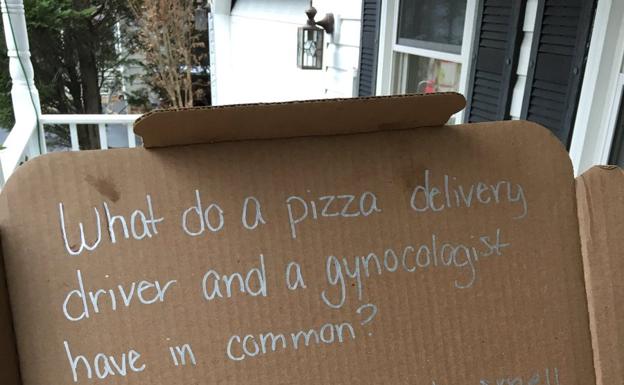 What do a pizza delivery
driver and a gynocologist
have in common?